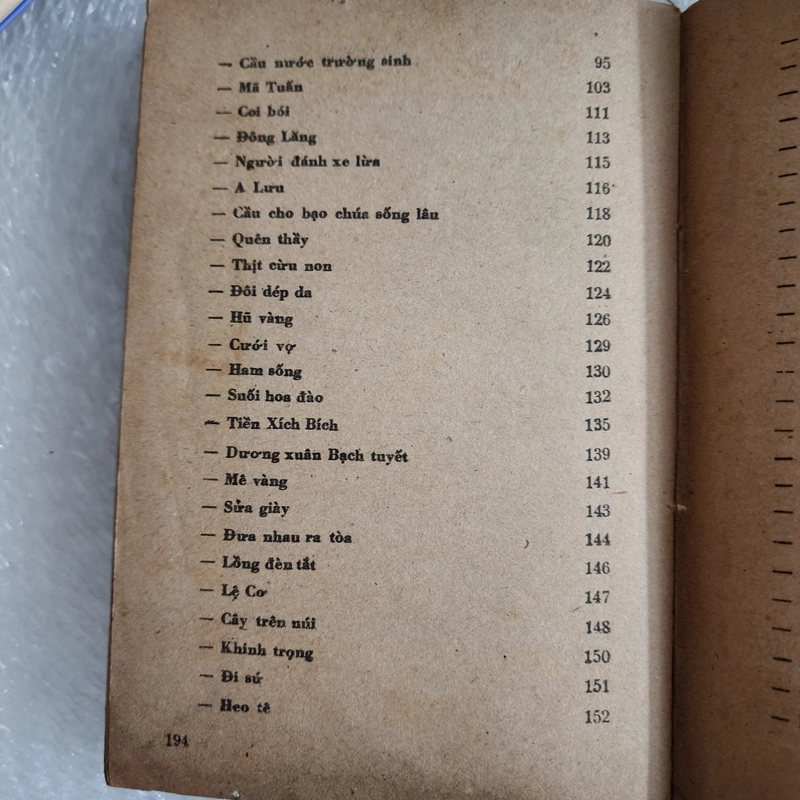 — Cầu nước trường sinh 95
— Mã Tuấn 103
— Coi bói 111
— Đông Lăng 113
— Người đánh xe lừa 115
— A Lưu 116
— Cầu cho bạo chúa sống lâu 118
— Quên thầy 120
— Thịt cừu non 122
— Đôi dép da 124
— Hũ vàng 126
— Cưới vợ 129
— Ham sống 130
— Suối hoa đào 132
— Tiền Xích Bích 135
— Dương xuân Bạch tuyết 139
— Mê vàng 141
— Sửa giày 143
— Đưa nhau ra tòa 144
— Lồng đèn tắt 146
— Lệ Cơ 147
— Cây trên núi 148
— Khinh trọng 150
— Đi sứ 151
— Heo tê 152
194